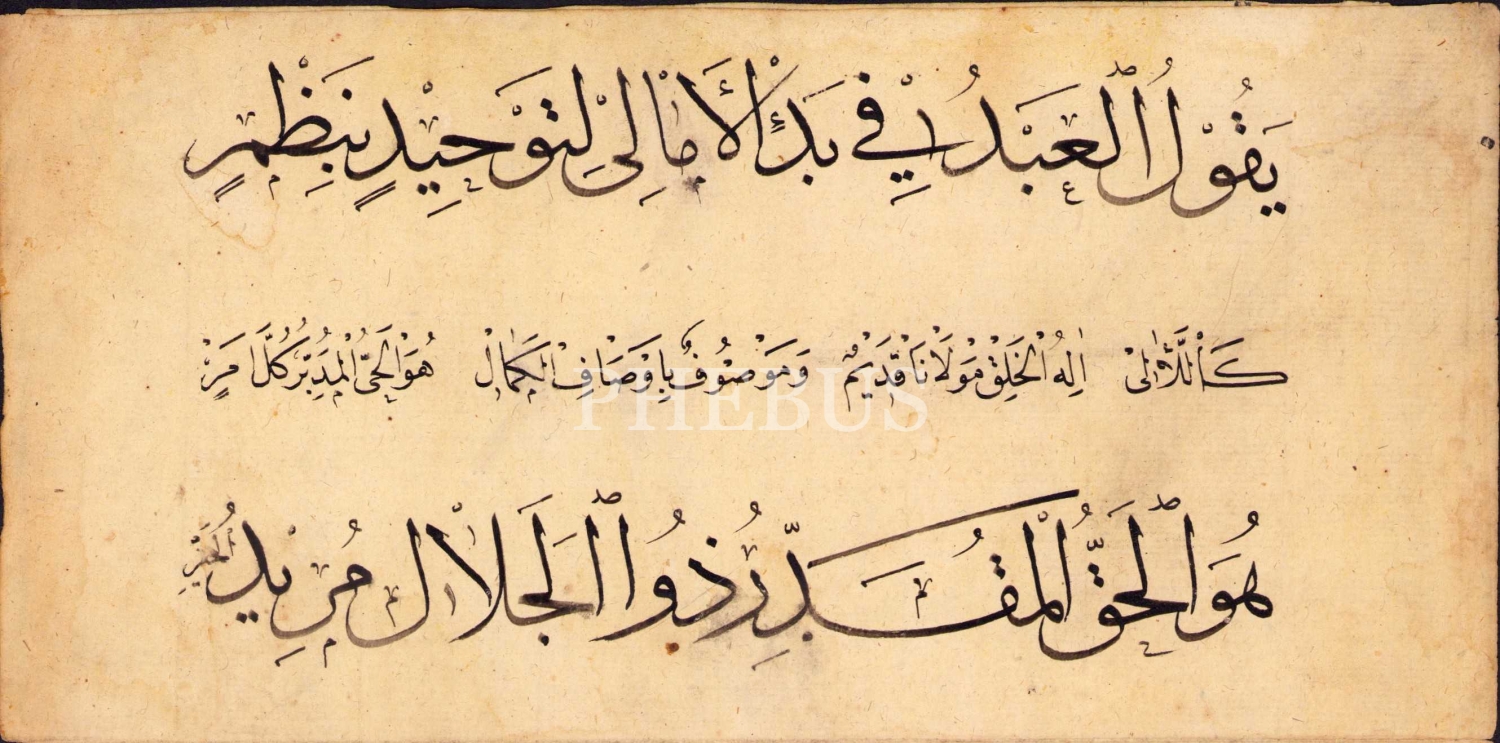 يَقُوْلُ ٱلْعَبْدُ فِيْ بَدْءِ الْأَمَالِيْ لِتَوْحِيْدٍ بِنَظْمٍ
كَاللَّاٰلِيْ اِلٰهُ الْخَلْقِ مَوْلَانَا قَدِيْمٌ وَمَوْصُوْفٌ بِاَوْصَافِ الْكَمَالْ هُوَ الْحَىُّ الْمُدَبِّرُ كُلَّ اَمْرٍ
هُوَ ٱلْحَقُّ الْمُقَدِّرُ ذُوا ٱلْجَلَالْ مُرِيْدُ الْخَيْرِ
PHEBUS